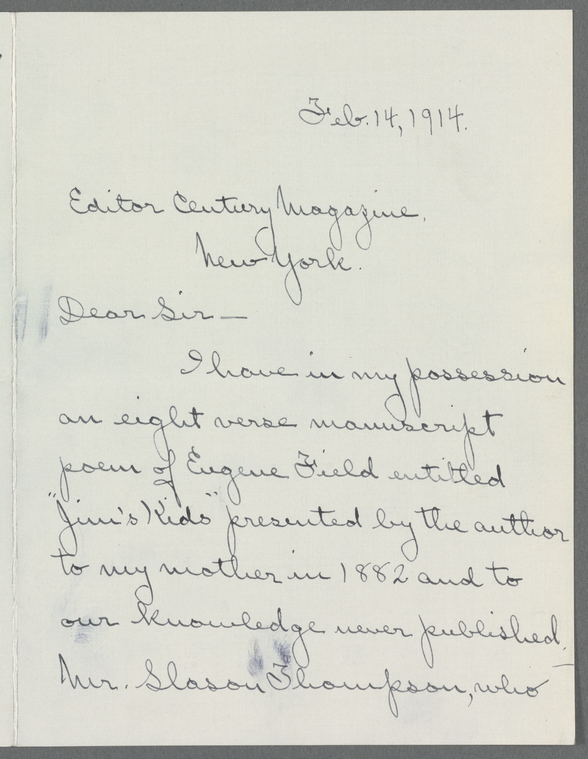 Feb. 14, 1914.
Editor Century Magazine,
New York.
Dear Sir —
I have in my possession
an eight verse manuscript
poem of Eugene Field entitled
"Jim's Kids" presented by the author
to my mother in 1882 and to
our knowledge never published.
Mr. Slason Thompson, who